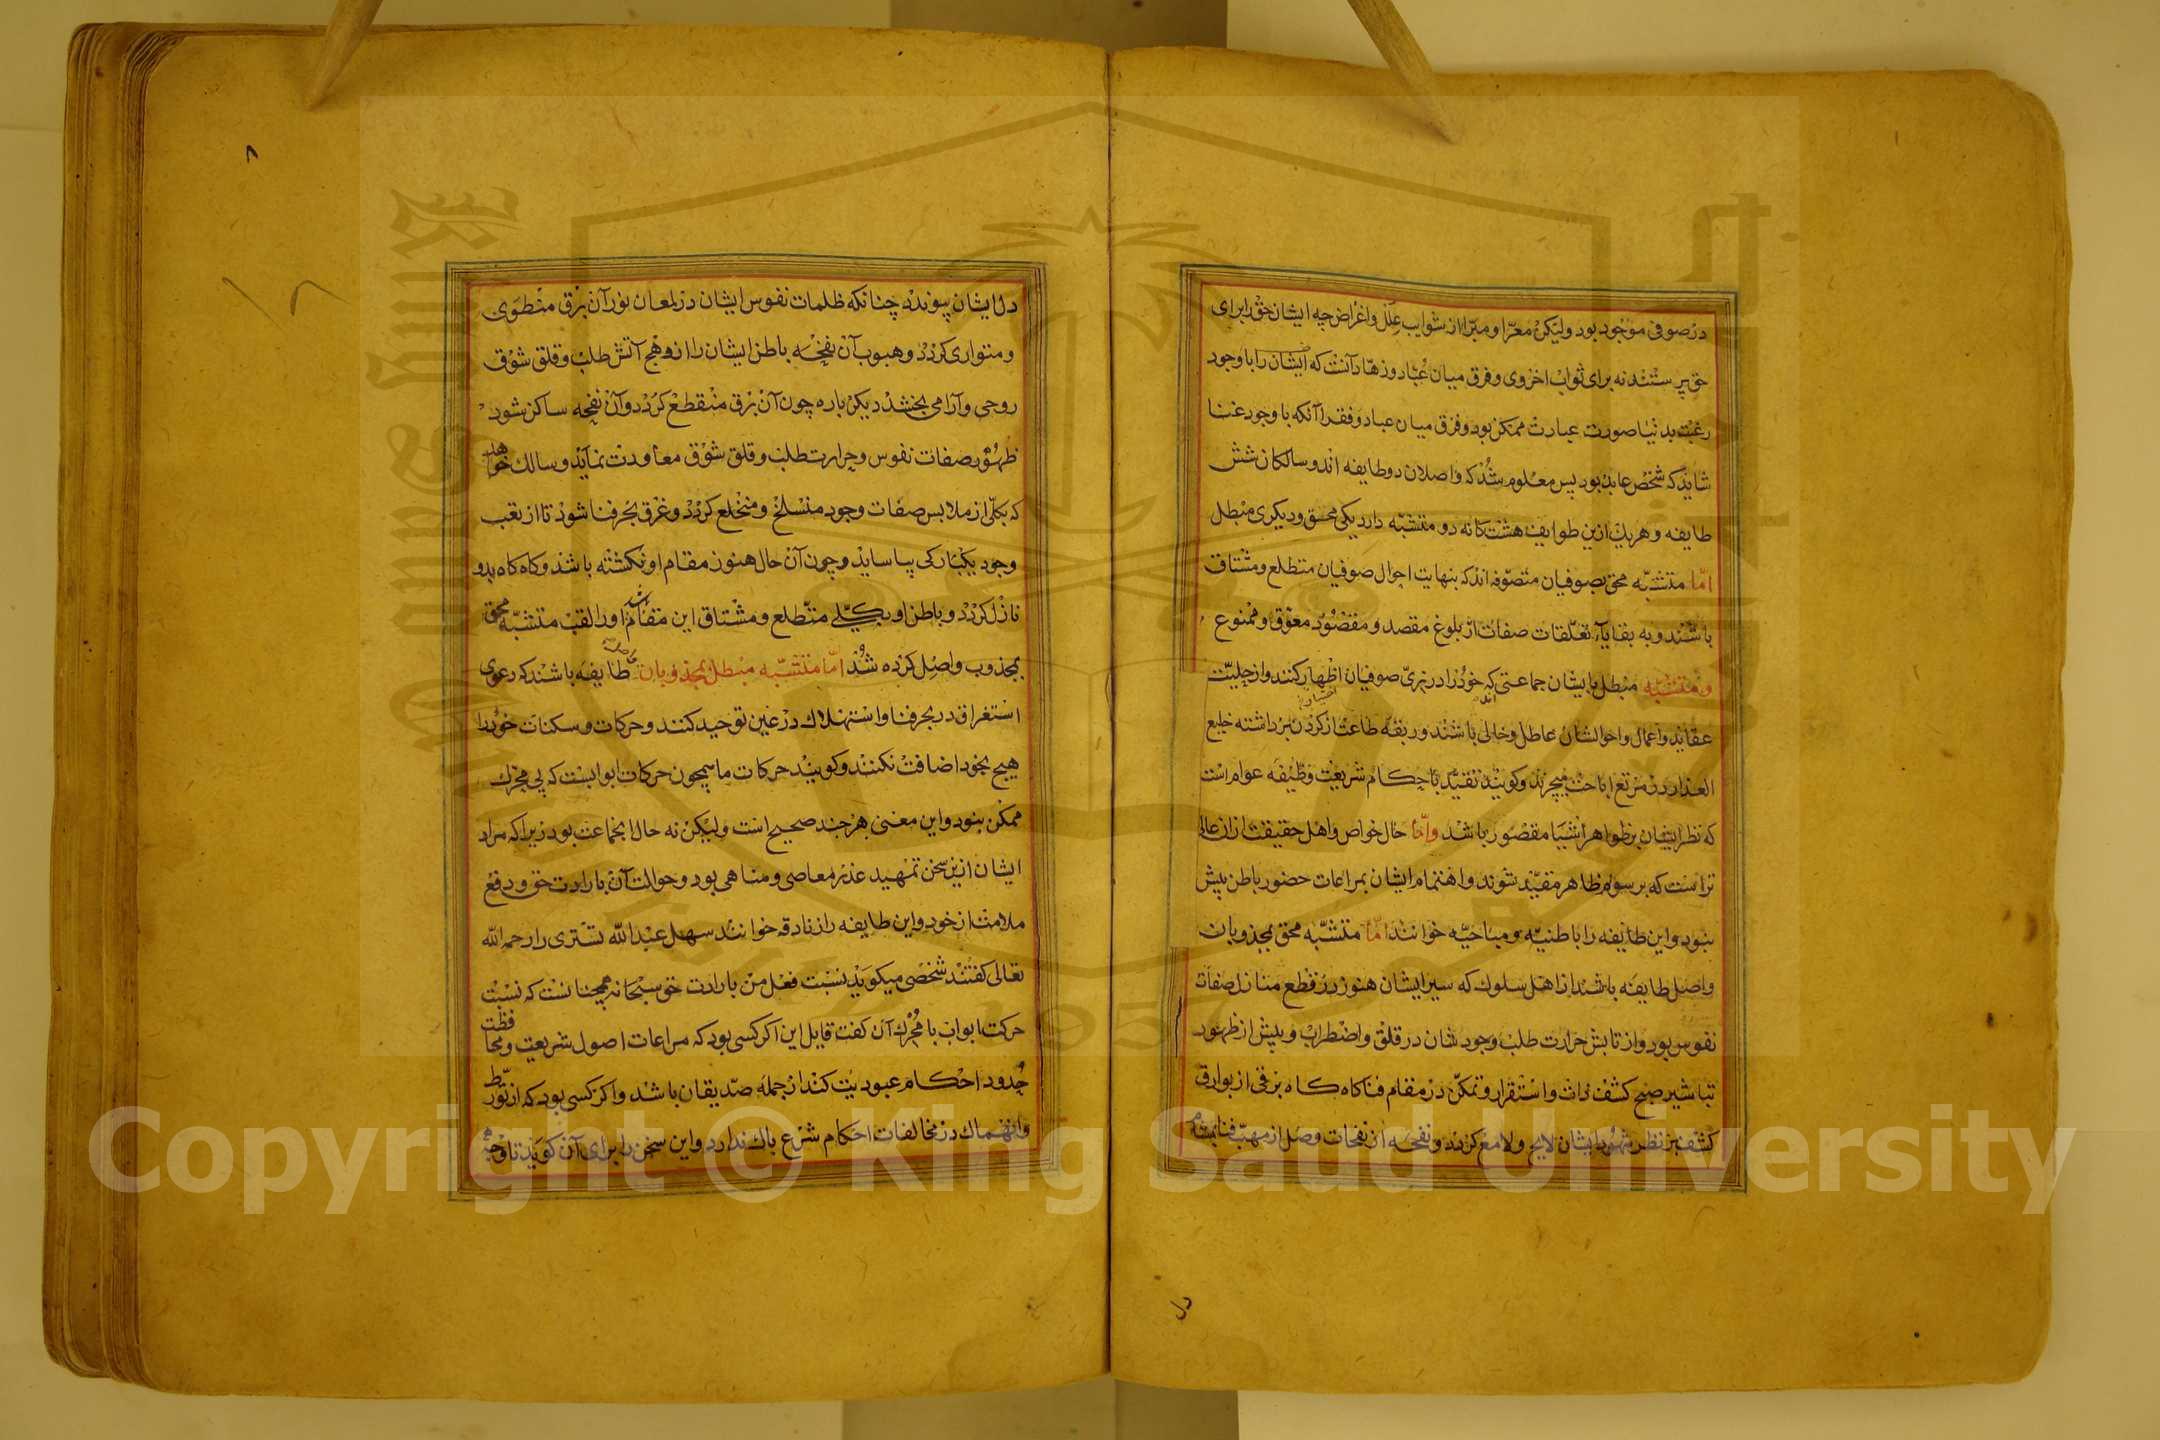 در صوفی موجود بود ولیکن معرّا و مبرّا از شوایب علل و اغراض چه ایشان حق را برای
حق پرستند نه برای ثواب اخروی و فرق میان عبّاد و زهّاد آنست که ایشان را با وجود
رغبت بدنیا صورت عبادت ممکن بود و فرق میان عباد و فقرا آنکه با وجود غنا
شاید که شخص عابد بود پس معلوم شد که واصلان دو طایفه اند و سالکان شش
طایفه و هر یک ازین طوایف هشت کانه دو متشبّه دارد یکی محق و دیکری مبطل
امّا متشبّه محق بصوفیان متصوّفه اند که بنهایت احوال صوفیان متطلع و مشتاق
باشند و به بقایآء تعلّقات صفات از بلوغ مقصد و مقصود معوّق و ممنوع
و متشبّه مبطل بایشان جماعتی که خود را در زیّ صوفیان اظهار کنند و از حلیت
عقاید و اعمال و احوالشان عاطل و خالی باشند و ربقه طاعت از کردن برداشته خلیع
العذار در مرتع اباحت میچرند و کویند تقیّد باحکام شریعت وظیفه عوام است
که نظر ایشان بر ظواهر اشیا مقصور باشد وامّا حال خواص و اهل حقیقت از ان عالی
تر است که برسوم ظاهر مقیّد شوند و اهتمام ایشان بمراعات حضور باطن بیش
نبود و این طایفه را باطنیّه و مباحیّه خوانند امّا متشبّه محق بمجذوبان
واصل طایفه باشند از اهل سلوک که سیر ایشان هنوز در قطع منازل صفات
نفوس بود و از تابش حرارت طلب وجودشان در قلق و اضطراب و پیش از ظهور
تباشیر صبح کشف ذات و استقرار و تمکّن در مقام فنا کاه کاه برقی از بوارق
کشف بر نظر شهود ایشان لایح و لامع کردد و نفحه از نفحات وصل از مهبّ فنا بمشام
دل
دل ایشان پیوندد چنانکه ظلمات نفوس ایشان در لمعان نور آن برق منطوی
و متواری کردد و هبوب آن نفحه باطن ایشان را از وهج آتش طلب و قلق شوق
روحی و آرامی بخشد دیکر باره چون آن برق منقطع کردد و آن نفحه ساکن شود
ظهور صفات نفوس و حرارت طلب و قلق شوق معاودت نماید و سالک خواهد
که بکلّی از ملابس صفات وجود منسلخ و منخلع کردد و غرق بحر فنا شود تا از تعب
وجود یکبارکی بیاساید و چون آن حال هنوز مقام او نکشته باشد و کاه کاه بدو
نازل کردد و باطن او بکلّی متطلع و مشتاق این مقام او را لقب متشبّه محق
بمجذوب واصل کرده شد امّا متشبّه مبطل بمجذوبان طایفه باشند که دعوی
استغراق در بحر فنا و استهلاک در عین توحید کنند و حرکات و سکنات خود را
هیچ بخود اضافت نکنند و کویند حرکات ما همچون حرکات ابوابست که بی محرک
ممکن نبود و این معنی هر چند صحیح است ولیکن نه حال این جماعت بود زیرا که مراد
ایشان ازین سخن تمهید عذر معاصی و مناهی بود و حوالت آن بارادت حق و دفع
ملامت از خود و این طایفه را زنادقه خوانند سهل عبد الله تشتری را رحمه الله
تعالی کفتند شخصی میکوید نسبت فعل من بارادت حق سبحانه همچنانست که نسبت
حرکت ابواب با محرک آن کفت قایل این اکر کسی بود که مراعات اصول شریعت و محافظت
حدود احکام عبودیت کند از جمله صدّیقان باشد و اکر کسی بود که از تورّط
و انهماک در مخالفات احکام شرع باک ندارد و این سخن را برای آن کوید تا وجه
Copyright © King Saud University
1957